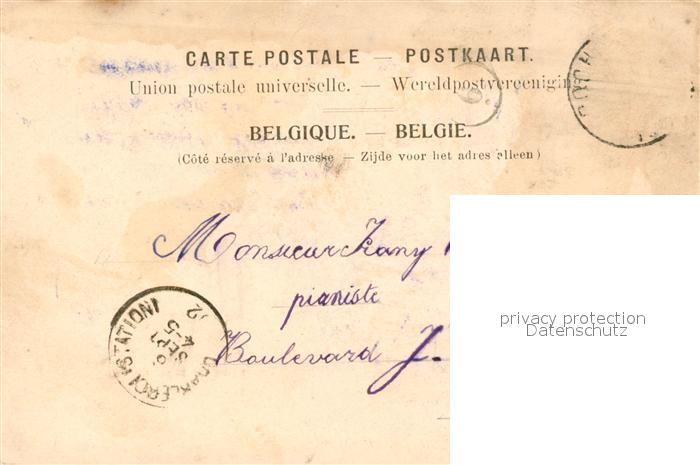 CARTE POSTALE — POSTKAART.
Union postale universelle. — Wereldpostvereeniging
BELGIQUE. — BELGIE.
(Côté réservé à l'adresse — Zijde voor het adres alleen)
Monsieur
pianiste
Boulevard J.
CHARLEROI (STATION)
6
SEPT
4-5
privacy protection
Datenschutz